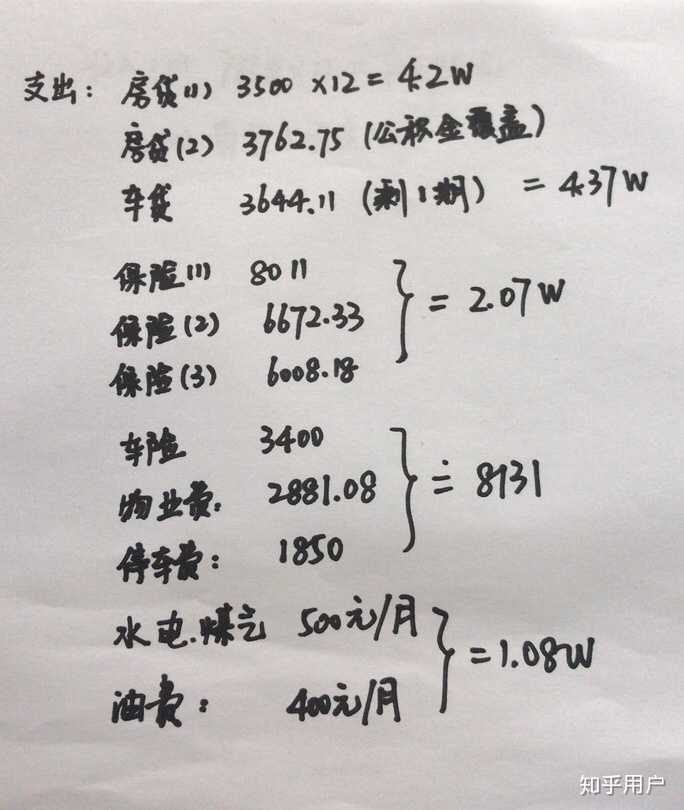 支出: 房贷(1) 3500 ×12 = 4.2W
房贷(2) 3762.75 (公积金覆盖)
车贷 3644.11 (剩1期) = 4.37W
保险(1) 8011
保险(2) 6672.33 } = 2.07W
保险(3) 6008.18
车险 3400
物业费: 2881.08 } ≐ 8131
停车费: 1850
水电.煤气 500元/月 } = 1.08W
油费: 400元/月
知乎用户